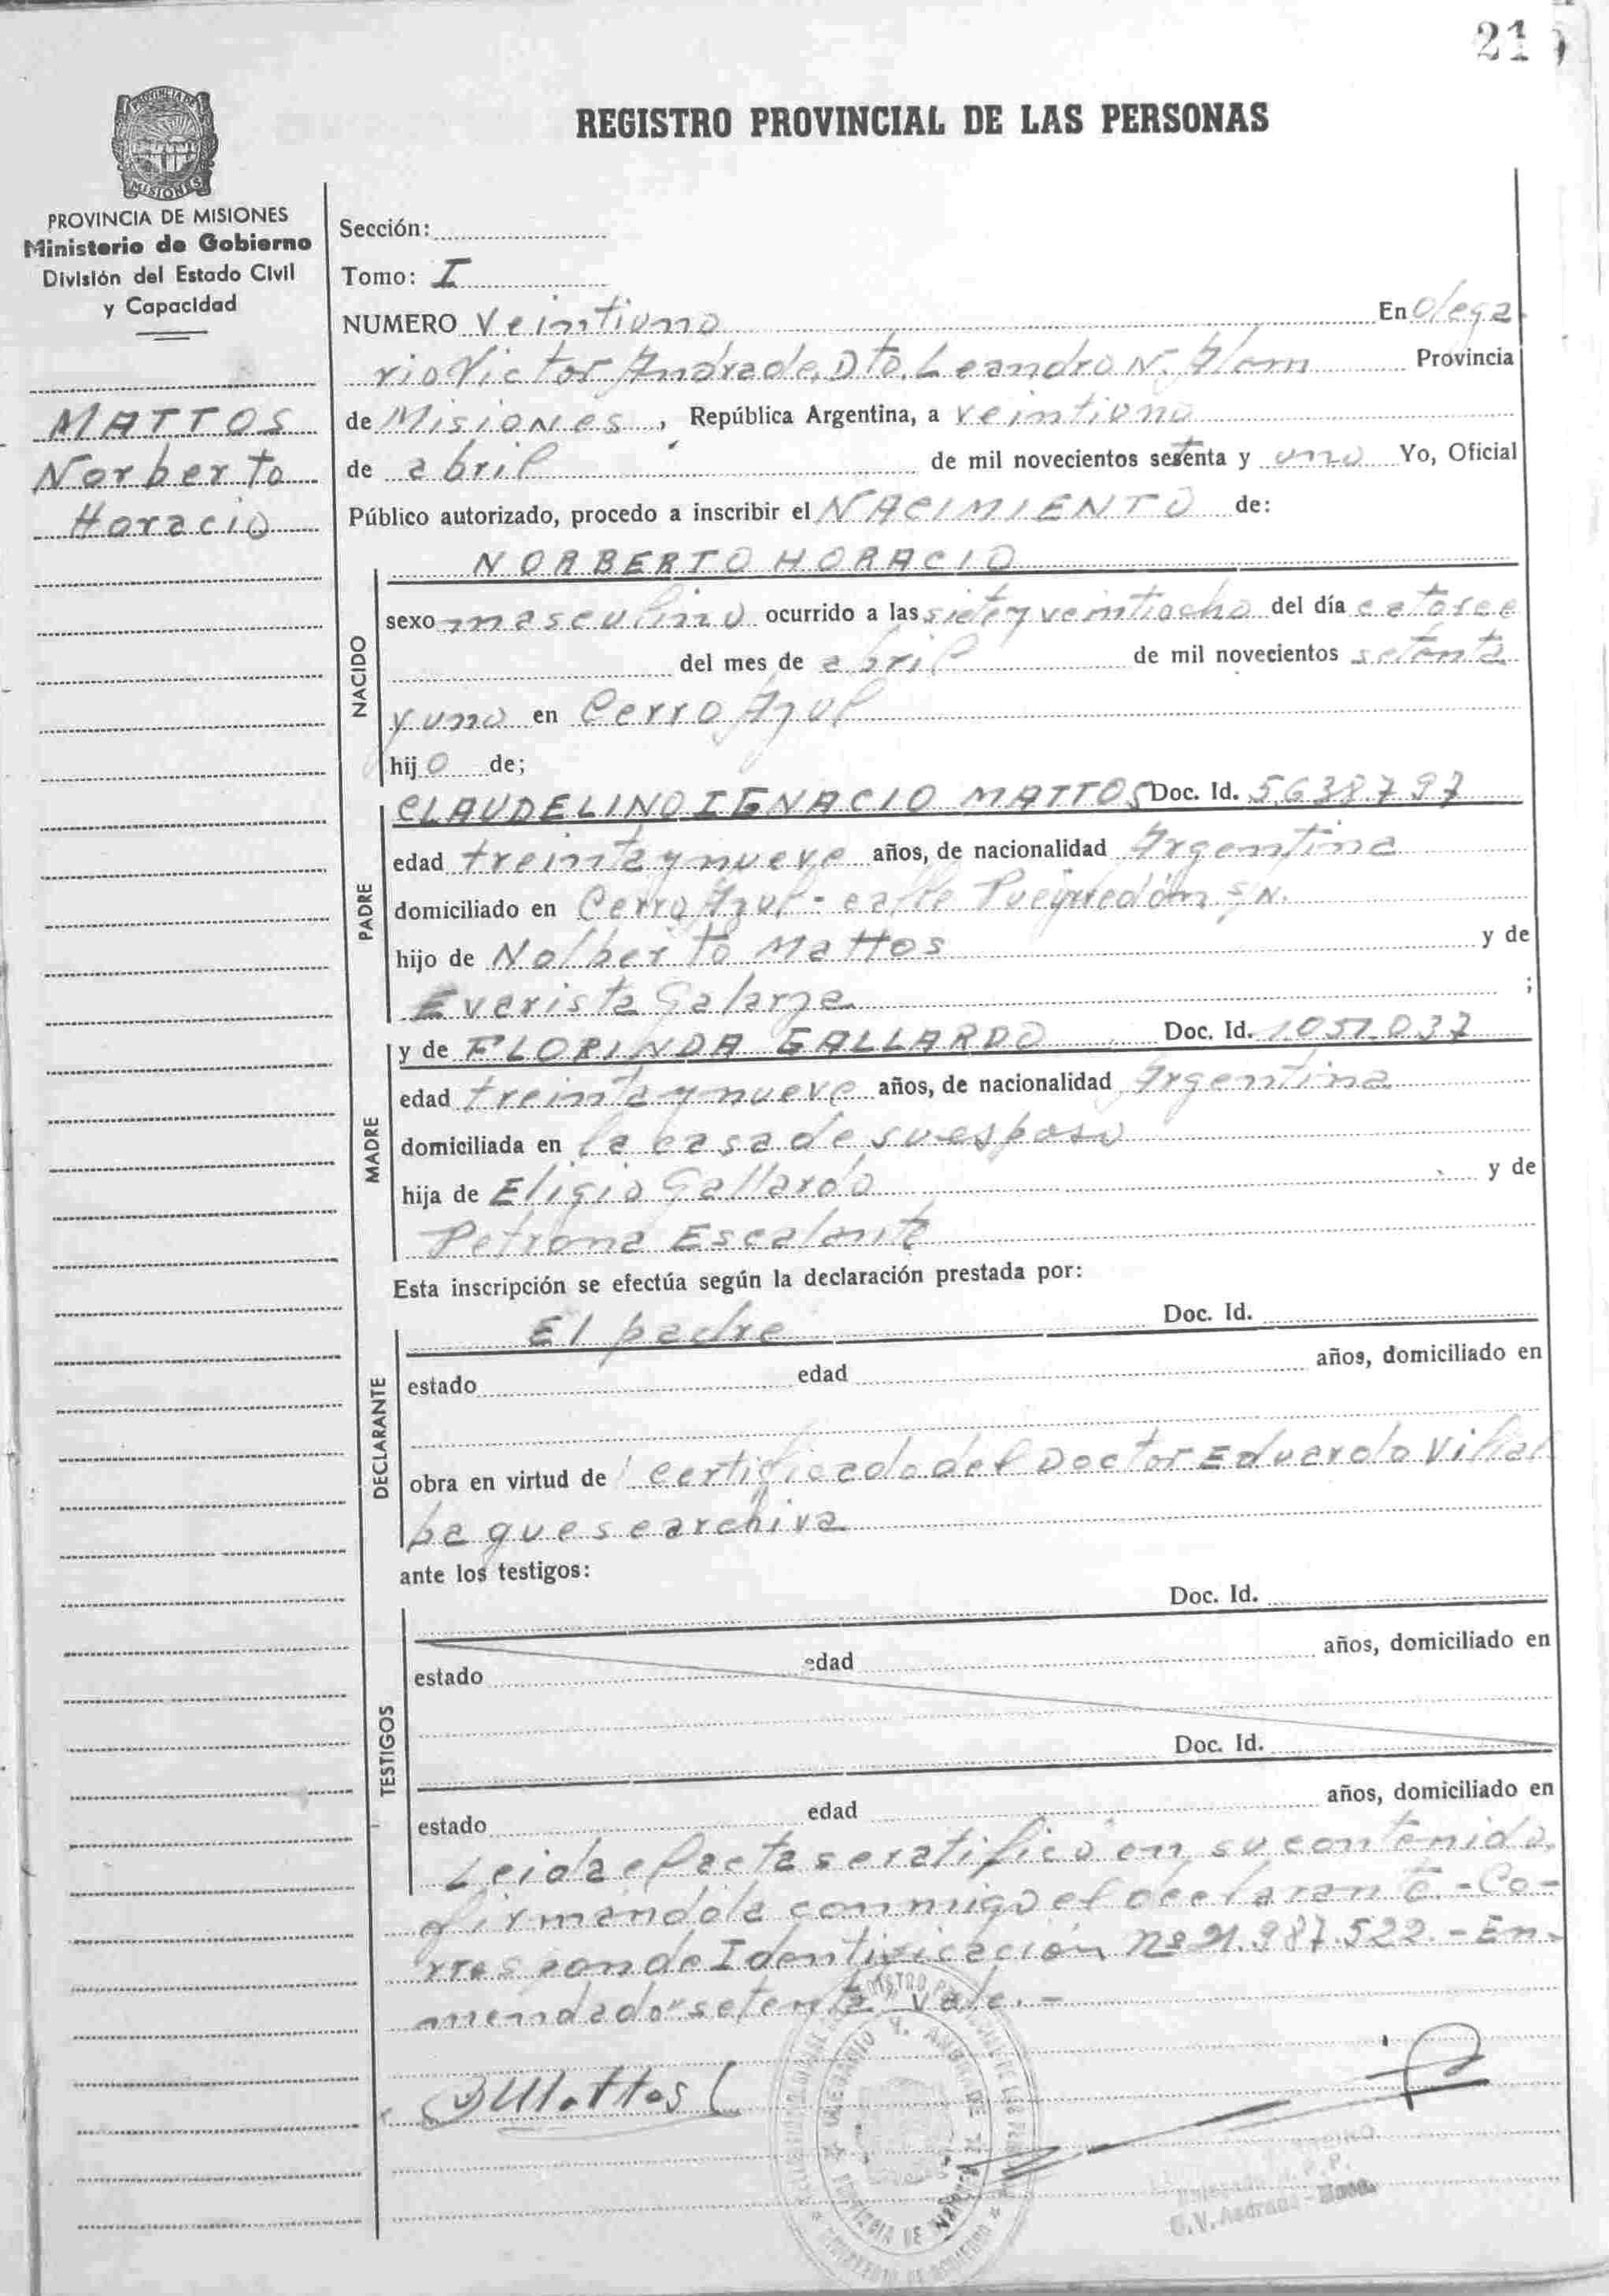 21
REGISTRO PROVINCIAL DE LAS PERSONAS
PROVINCIA DE
MISIONES
PROVINCIA DE MISIONES
Ministerio de Gobierno
División del Estado Civil
y Capacidad
MATTOS
Norberto
Horacio
Sección:
Tomo: I
NUMERO Veintiuno En Olega
rio Victor Andrade, Dto. Leandro N. Alem Provincia
de Misiones, República Argentina, a veintiuno
de abril de mil novecientos setenta y uno Yo, Oficial
Público autorizado, procedo a inscribir el NACIMIENTO de:
NORBERTO HORACIO
NACIDO
sexo masculino ocurrido a las siete y veintiocho del día catorce
del mes de abril de mil novecientos setenta
y uno en Cerro Azul
hijo de;
PADRE
CLAUDELINO IGNACIO MATTOS Doc. Id. 5638797
edad treinta y nueve años, de nacionalidad Argentina
domiciliado en Cerro Azul - calle Pueyrredón s/N.
hijo de Nolberto Mattos y de
Evarista Galarza ;
MADRE
y de FLORINDA GALLARDO Doc. Id. 1.051.037
edad treinta y nueve años, de nacionalidad Argentina
domiciliada en la casa de su esposo
hija de Eligio Gallardo y de
Petrona Escalante
Esta inscripción se efectúa según la declaración prestada por:
DECLARANTE
El padre Doc. Id.
estado edad años, domiciliado en
obra en virtud de certificado del Doctor Eduardo Villal
ba que se archiva
ante los testigos:
TESTIGOS
Doc. Id.
estado edad años, domiciliado en
Doc. Id.
estado edad años, domiciliado en
Leida el acta se ratificó en su contenido,
firmándola conmigo el declarante.-Co-
rresponde Identificación nº 21.987.522.-En-
mendado "setenta" Vale.-
Mattos
O.V. Andrade - Mnes.